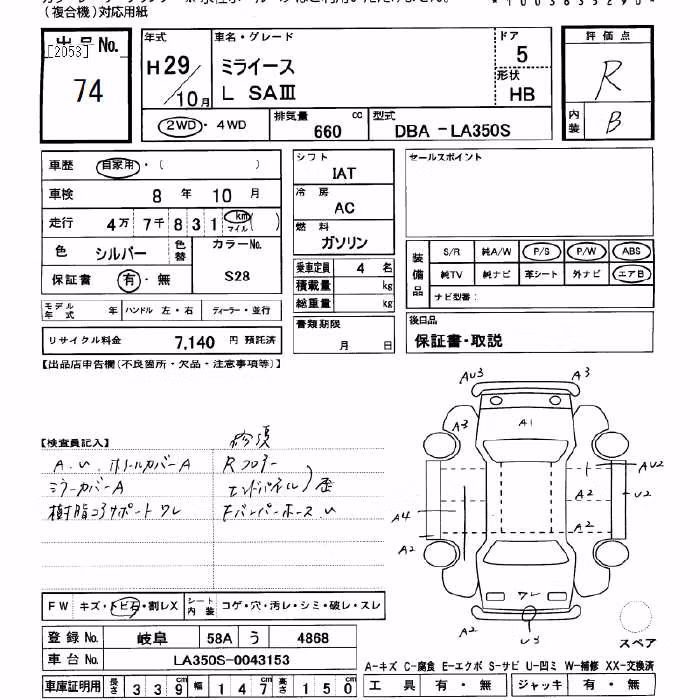 （複合機）対応用紙
出品No.
[2053]
74
年式
H29/10月
車名・グレード
ミライース
L SAⅢ
ドア
5
形状
HB
評価点
R
内装
B
2WD・4WD
排気量
660 cc
型式
DBA －LA350S
車歴 自家用・（　）
車検 8 年 10 月
走行 4万 7千 8 3 1 km マイル（　）
色 シルバー
色替
カラーNo.
S28
保証書 有・無
シフト
IAT
冷房
AC
燃料
ガソリン
乗車定員 4 名
積載量 kg
総重量 kg
書類期限
月 日
セールスポイント
装備品
S/R 純A/W P/S P/W ABS
純TV 純ナビ 革シート 外ナビ エアB
ナビ型番：
後日品
保証書・取説
モデル年式 年 ハンドル 左・右 ディーラー・並行
リサイクル料金 7,140 円 預託済
【出品店申告欄（不良箇所・欠品・注意事項等）】
【検査員記入】
A.U. ホイールカバーA
ミラーカバーA
樹脂コアサポートワレ
Rフロアー
エンドパネル）歪
FバンパーホースU
AU3 A3
A3 A1
AU2
A2 U2
A4 A2
A2
ワレ
A2 U3
スペア
FW キズ・トビ石・割レX シート内装 コゲ・穴・汚レ・シミ・破レ・スレ
登録No. 岐阜 58A う 4868
車台No. LA350S-0043153
車庫証明用 長さ 339 幅 147 高さ 150
A-キズ C-腐食 E-エクボ S-サビ U-凹ミ W-補修 XX-交換済
工具 有・無 ジャッキ 有・無